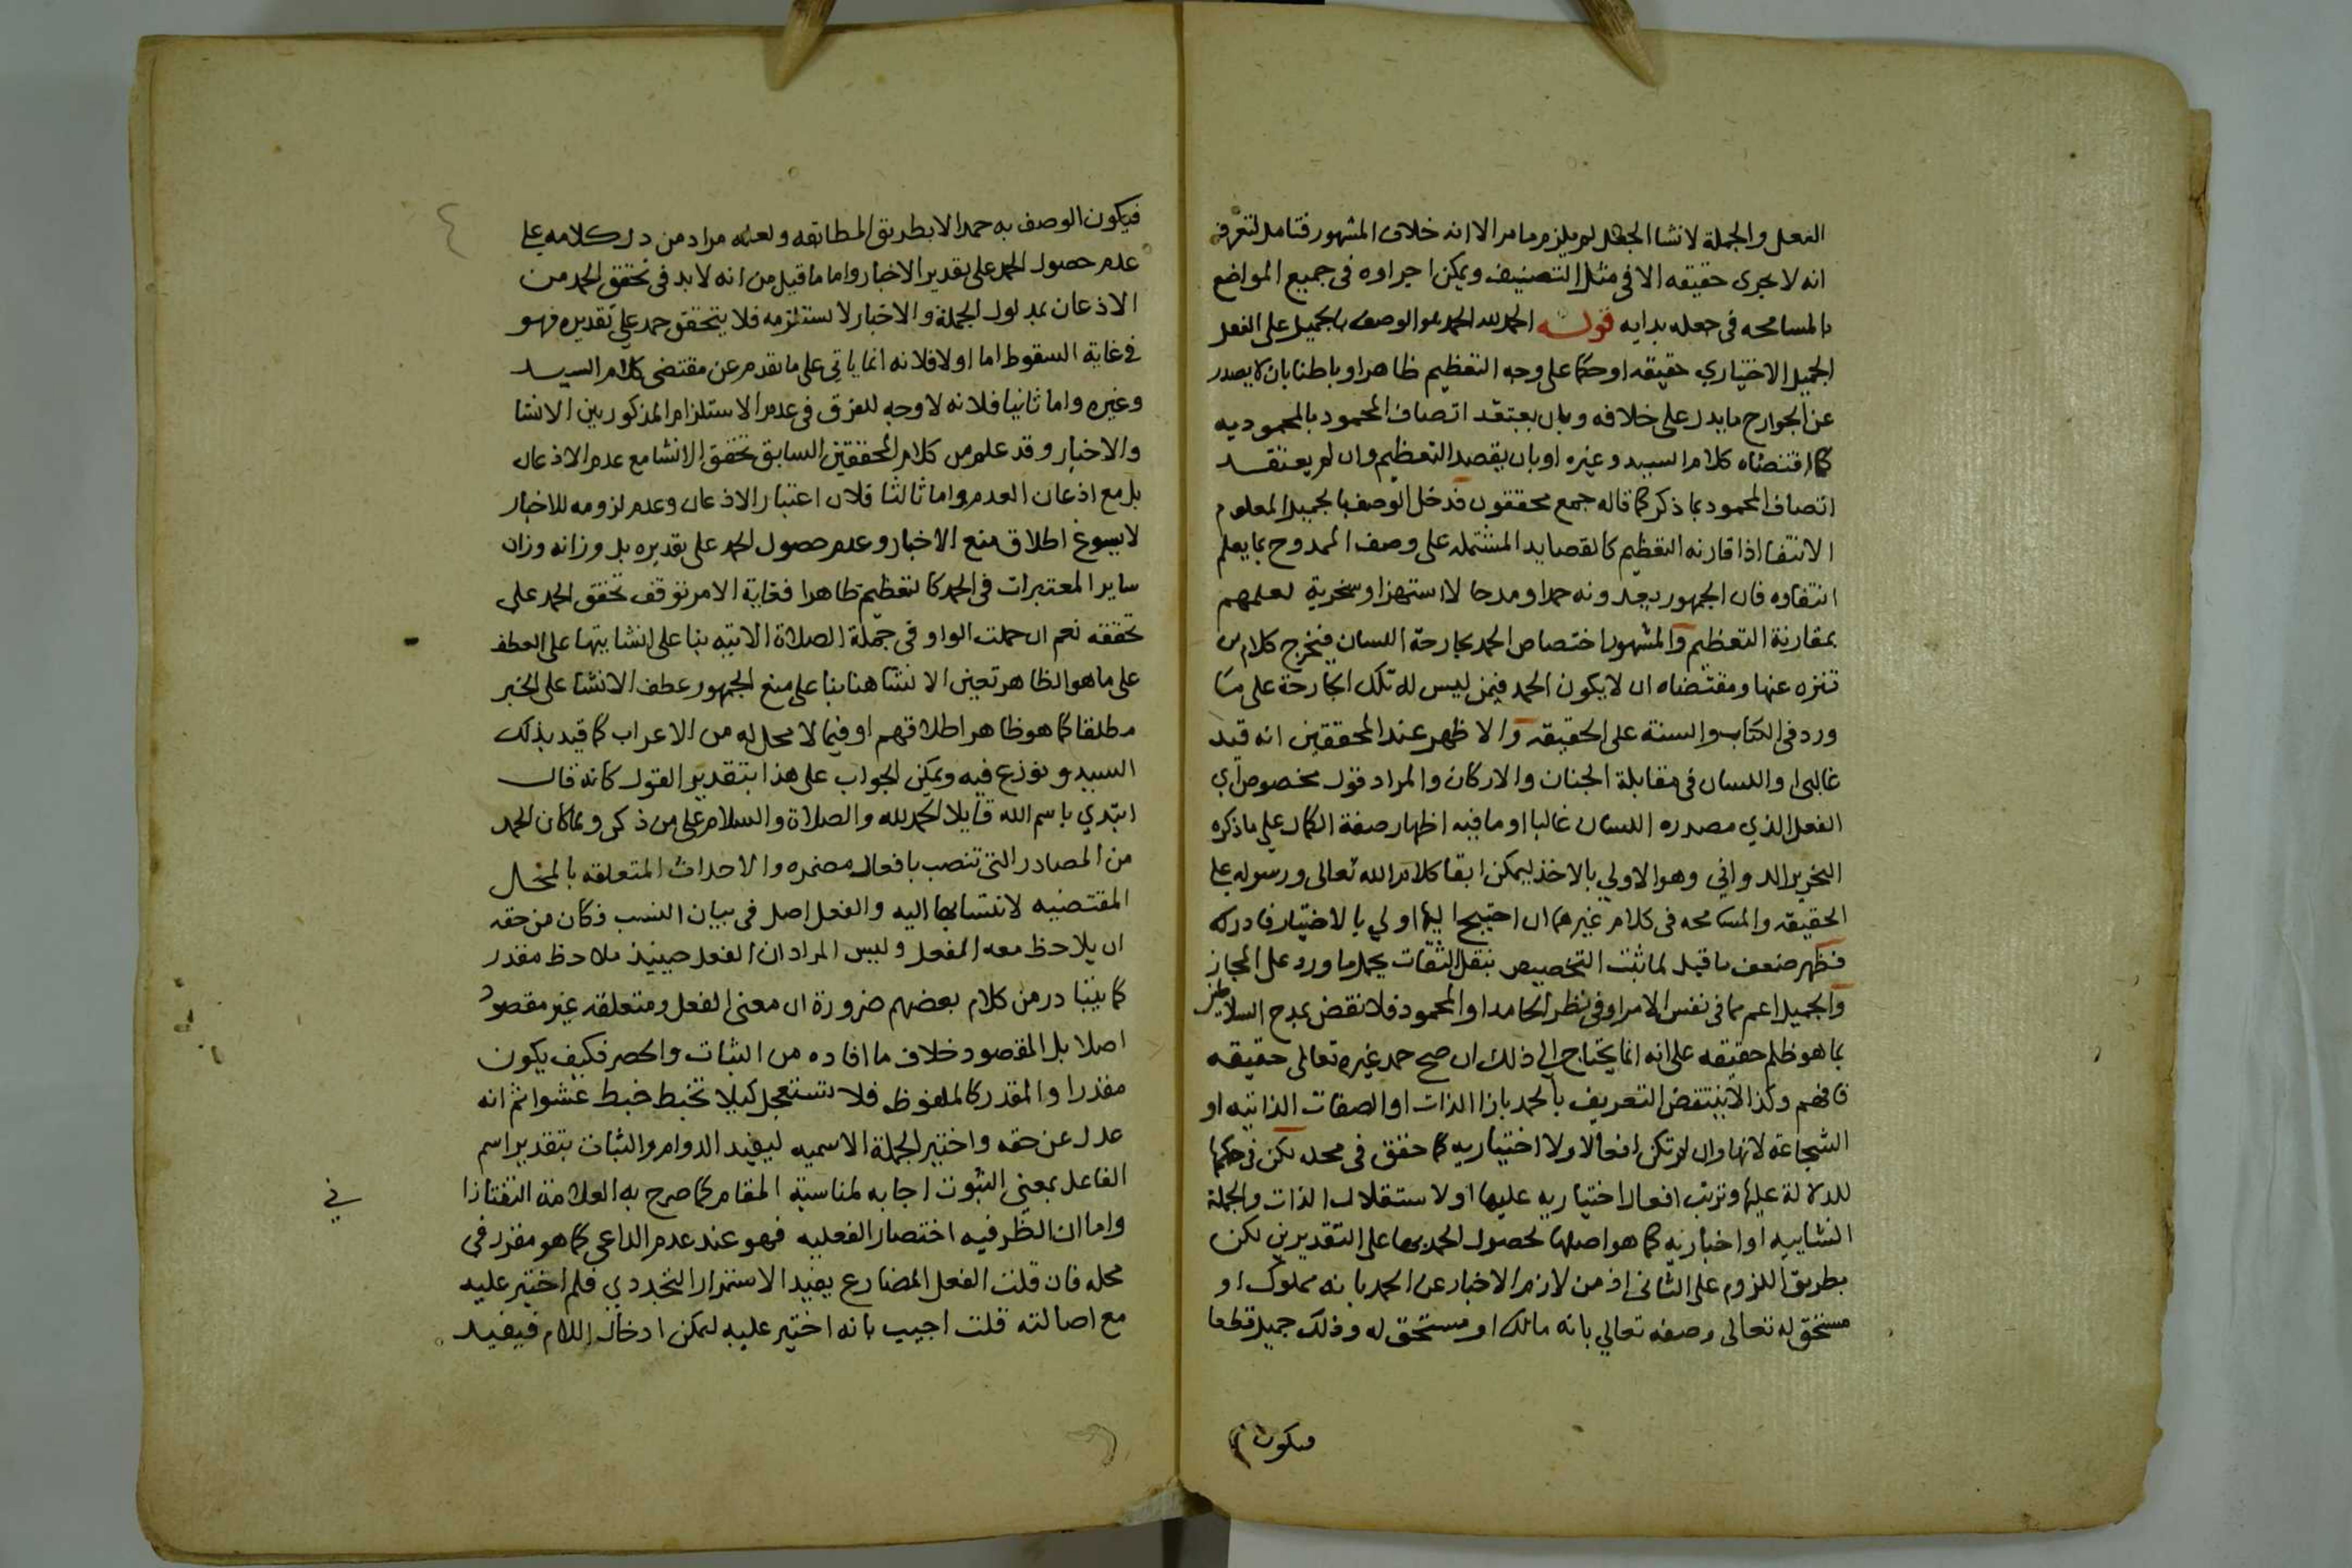 الفعل والجملة لانشا الجعل لم يلزم ما مر الا انه خلاف المشهور فتامل لتعرف
انه لا يجرى حقيقه الا فى مثل التصنيف ويمكن اجراوه فى جميع المواضع
بالمسامحه فى جعله بدايه قوله الحمد لله الحمد هو الوصف بالجميل على الفعل
الجميل الاختياري حقيقه او حكما على وجه التعظيم ظاهرا وباطنا بان لا يصدر
عن الجوارح ما يدل على خلافه وبان يعتقد اتصاف المحمود بالمحموديه
كما اقتضاه كلام السيد وغيره او بان يقصد التعظيم وان لم يعتقد
اتصاف المحمود بما ذكر كما قاله جمع محققون فدخل الوصف بالجميل المعلوم
الانتفا اذا قارنه التعظيم كالقصايد المشتمله على وصف الممدوح بما يعلم
انتفاوه فان الجمهور يعدونه حمدا ومدحا لا استهزا وسخرية لعلمهم
بمقارنة التعظيم والمشهور اختصاص الحمد بجارحة اللسان فيخرج كلام من
تنزه عنها ومقتضاه ان لا يكون الحمد فيمن ليس له تلك الجارحة على ما
ورد فى الكتاب والسنة على الحقيقه والاظهر عند المحققين انه قيد
غالبى او اللسان فى مقابلة الجنان والاركان والمراد قول مخصوص اي
الفعل الذي مصدره اللسان غالبا او ما فيه اظهار صفة الكمال علي ما ذكره
النحرير الدواني وهو الاولي بالاخذ ليمكن ابقا كلام الله تعالى ورسوله علي
الحقيقه والمسامحه فى كلام غيرهما ان احتيج اليها اولي بالاختيار فادركه
فظهر ضعف ما قيل لما ثبت التخصيص بنقل الثقات يحمل ما ورد على المجاز
والجميل اعم مما فى نفس الامر او فى نظر الحامد او المحمود فلا نقض بمدح السلاطين
بما هو ظلم حقيقه على انه انما يحتاج الي ذلك ان صح حمد غيره تعالى حقيقه
فافهم وكذا لا ينتقض التعريف بالحمد بازا الذات او الصفات الذاتيه او
الشجاعة لانها وان لم تكن افعالا ولا اختياريه كما حقق فى محله لكن فى حكمها
للدلالة عليها وترتب افعال اختياريه عليها او لاستقلال الذات والجملة
انشاييه او اخباريه كما هو اصلها لحصول الحمد بها على التقديرين لكن
بطريق اللزوم على الثانى اذ من لازم الاخبار عن الحمد بانه مملوك او
مستحق له تعالى وصفه تعالي بانه مالك او مستحق له وذلك جميل قطعا
فيكون
فيكون الوصف به حمدا لا بطريق المطابقه ولعله مراد من دل كلامه علي
عدم حصول الحمد على تقدير الاخبار واما ما قيل من انه لا بد فى تحقق الحمد من
الاذعان بمدلول الجملة والاخبار لا يستلزمه فلا يتحقق حمد علي تقديره فهو
فى غاية السقوط اما اولا فلانه انما ياتي على ما تقدم عن مقتضى كلام السيد
وغيره واما ثانيا فلانه لا وجه للفرق فى عدم الاستلزام المذكور بين الانشا
والاخبار وقد علم من كلام المحققين السابق تحقق الانشا مع عدم الاذعان
بل مع اذعان العدم واما ثالثا فلان اعتبار الاذعان وعدم لزومه للاخبار
لا يسوغ اطلاق منع الاخبار وعدم حصول الحمد على تقديره بل وزانه وزان
ساير المعتبرات فى الحمد كالتعظيم ظاهرا فغاية الامر توقف تحقق الحمد على
تحققه نعم ان حملت الواو فى جملة الصلاة الاتيه بنا على انشايتها على العطف
على ما هو الظاهر تعين الانشا هنا بنا على منع الجمهور عطف الانشا على الخبر
مطلقا كما هو ظاهر اطلاقهم او فيما لا محل له من الاعراب كما قيد بذلك
السيد ونوزع فيه ويمكن الجواب على هذا بتقدير القول كانه قال
ابتدي باسم الله قايلا الحمد لله والصلاة والسلام على من ذكر ولما كان الحمد
من المصادر التى تنصب بافعال مضمره والاحداث المتعلقه بالمحال
المقتضيه لانتسابها اليه والفعل اصل فى بيان النسب فكان من حقه
ان يلاحظ معه الفعل وليس المراد ان الفعل حينيذ ملاحظ مقدر
كما يتبادر من كلام بعضهم ضرورة ان معنى الفعل ومتعلقه غير مقصود
اصلا بل المقصود خلاف ما افاده من الثبات والحصر فكيف يكون
مقدرا والمقدر كالملفوظ فلا تستعجل كيلا تخبط خبط عشوا ثم انه
عدل عن حقه واختير الجملة الاسميه ليفيد الدوام والثبات بتقدير اسم
الفاعل بمعنى الثبوت اجابه لمناسبة المقام كما صرح به العلامة التفتازا
ني
واما ان الظرفيه اختصار الفعليه فهو عند عدم الداعى كما هو مقرر فى
محله فان قلت الفعل المضارع يفيد الاستمرار التجددي فلم اختير عليه
مع اصالته قلت اجيب بانه اختير عليه ليمكن ادخال اللام فيفيد